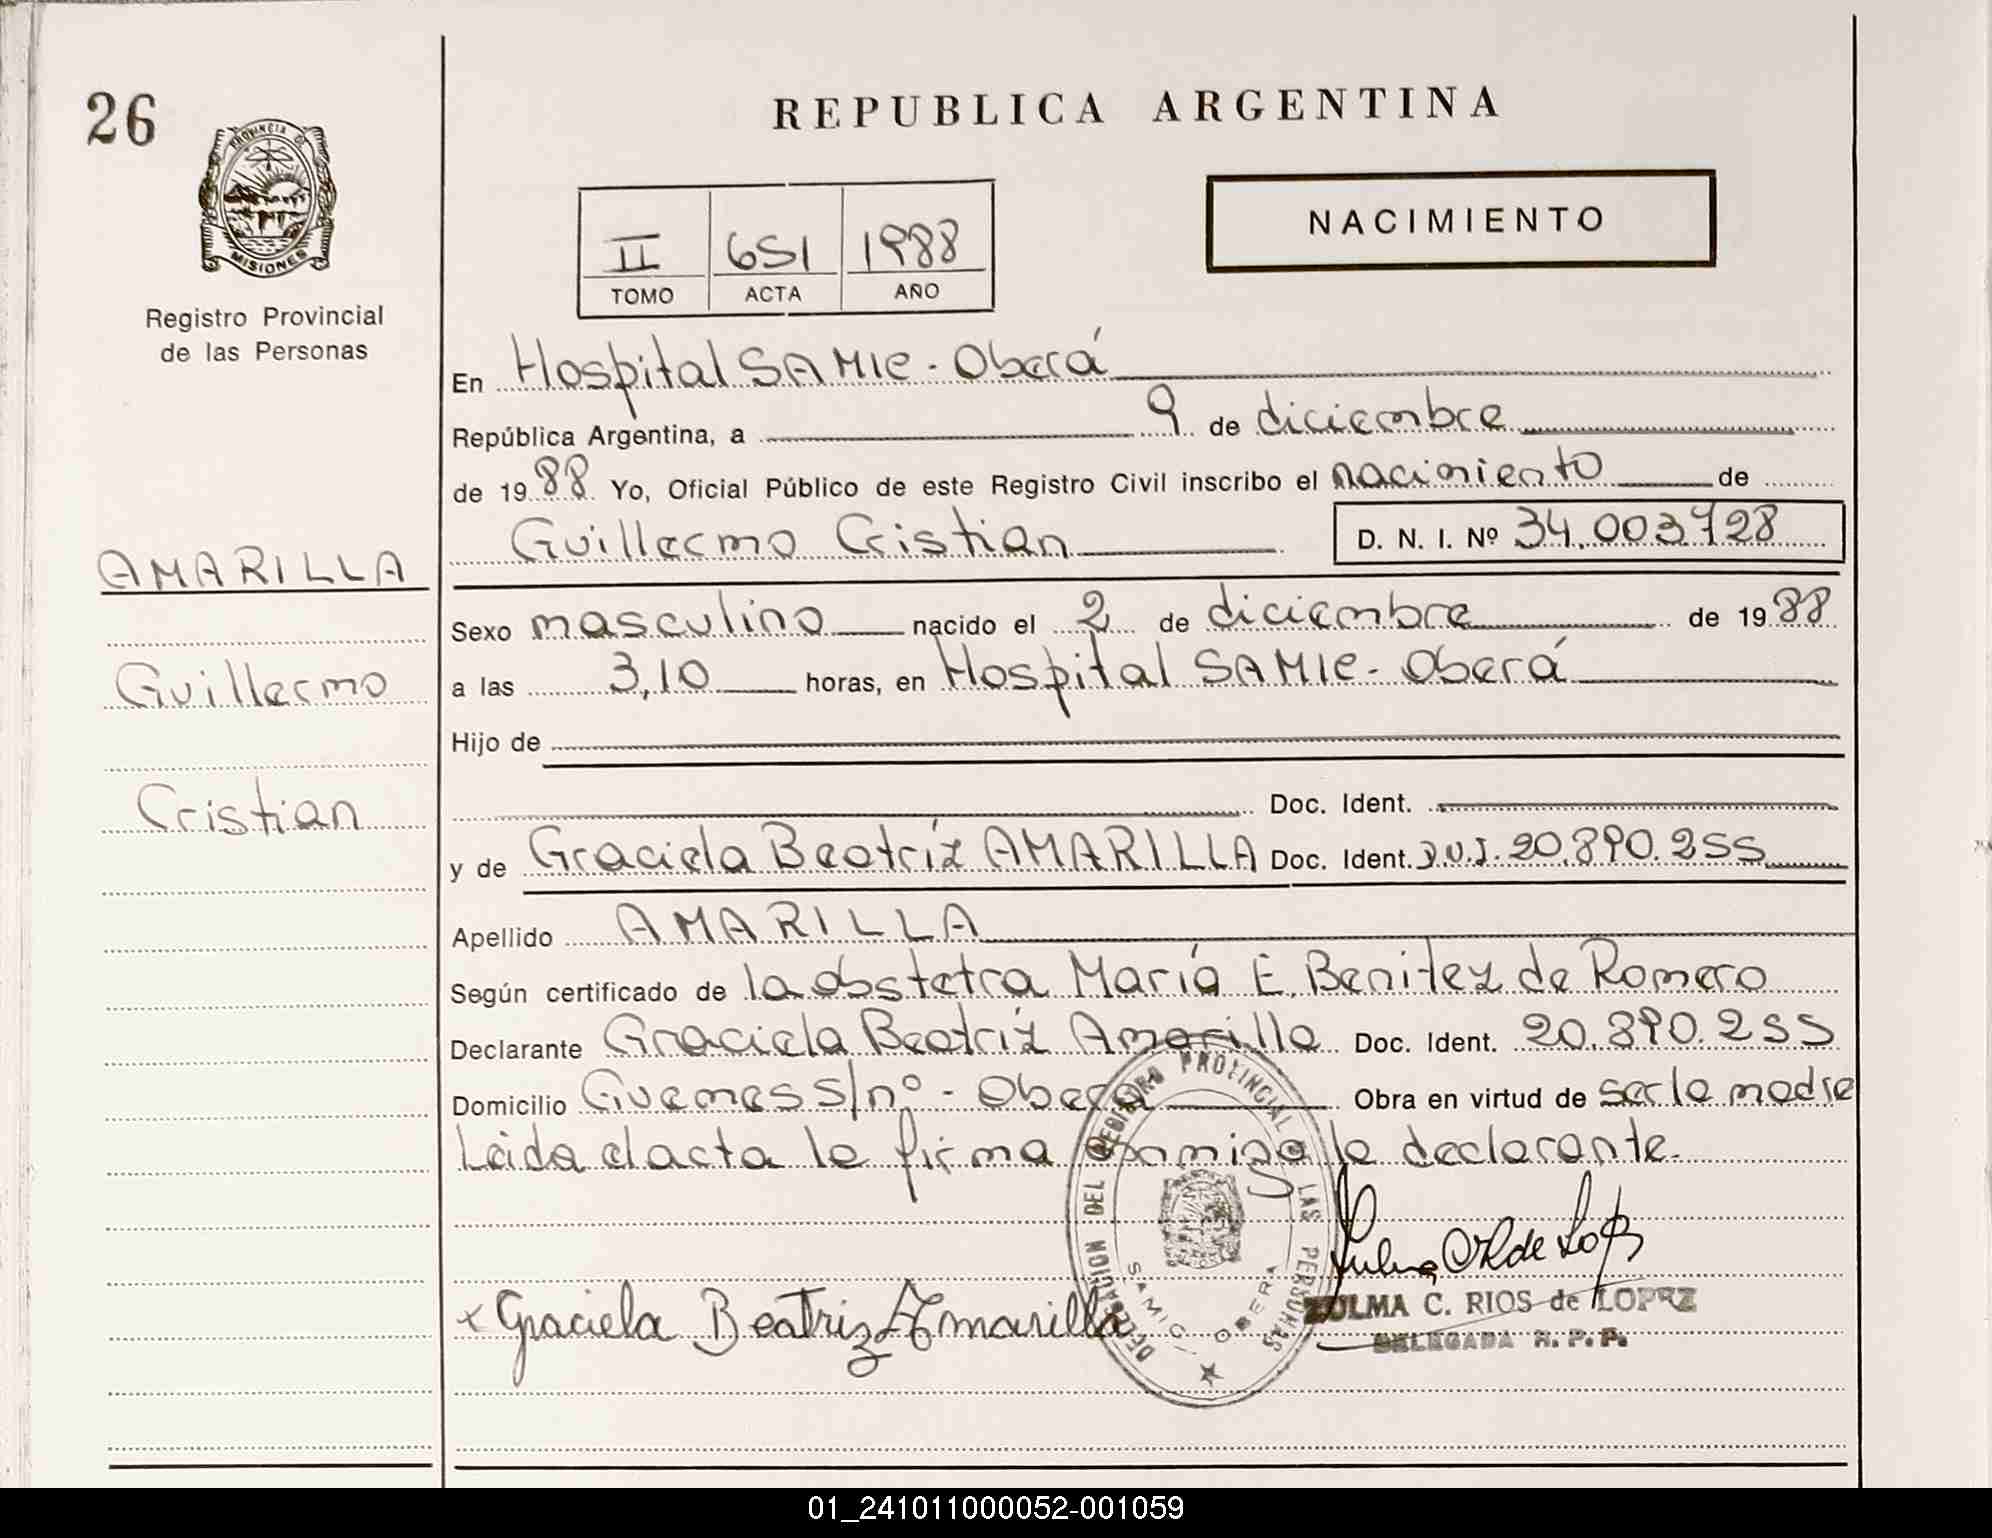 26
REPUBLICA ARGENTINA
PROVINCIA DE
MISIONES
Registro Provincial
de las Personas
II 651 1988
TOMO ACTA AÑO
NACIMIENTO
En Hospital SAMIC - Oberá
República Argentina, a 9 de diciembre
de 1988 Yo, Oficial Público de este Registro Civil inscribo el nacimiento de
Guillermo Cristian D. N. I. Nº 34.003.728
AMARILLA
Guillermo
Cristian
Sexo masculino nacido el 2 de diciembre de 1988
a las 3,10 horas, en Hospital SAMIC - Oberá
Hijo de
Doc. Ident.
y de Graciela Beatríz AMARILLA Doc. Ident. D.U.I. 20.890.255
Apellido AMARILLA
Según certificado de la obstetra María E. Benitez de Romero
Declarante Graciela Beatríz Amarilla Doc. Ident. 20.890.255
Domicilio Guemes s/nº - Oberá Obra en virtud de ser la madre
Leida el acta la firma conmigo la declarante.
DELEGACION DEL REGISTRO PROVINCIAL DE LAS PERSONAS
SAMIC - OBERA
x Graciela Beatriz Amarilla
ZULMA C. RIOS de LOPEZ
DELEGADA R. P. P.
01_241011000052-001059